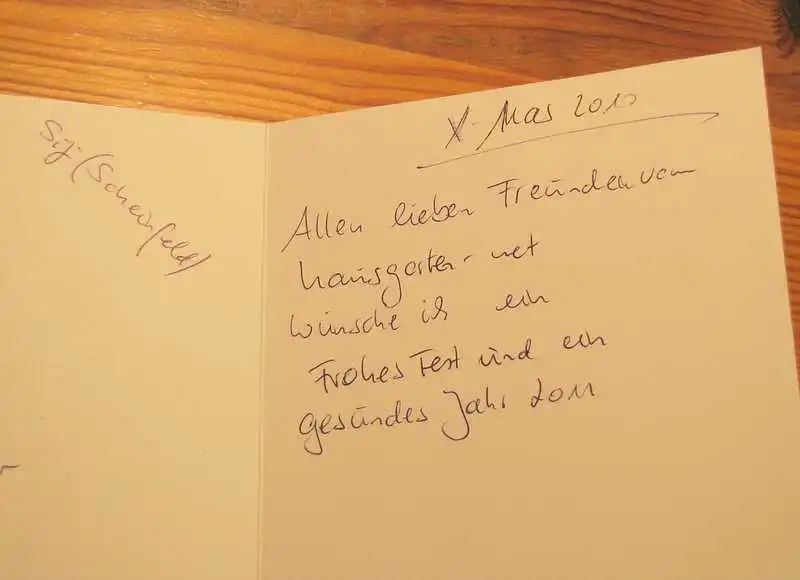 Sigi (Scheinfeld)
X-Mas 2010
Allen lieben Freunden vom
hausgarten-net
wünsche ich ein
Frohes Fest und ein
gesundes Jahr 2011